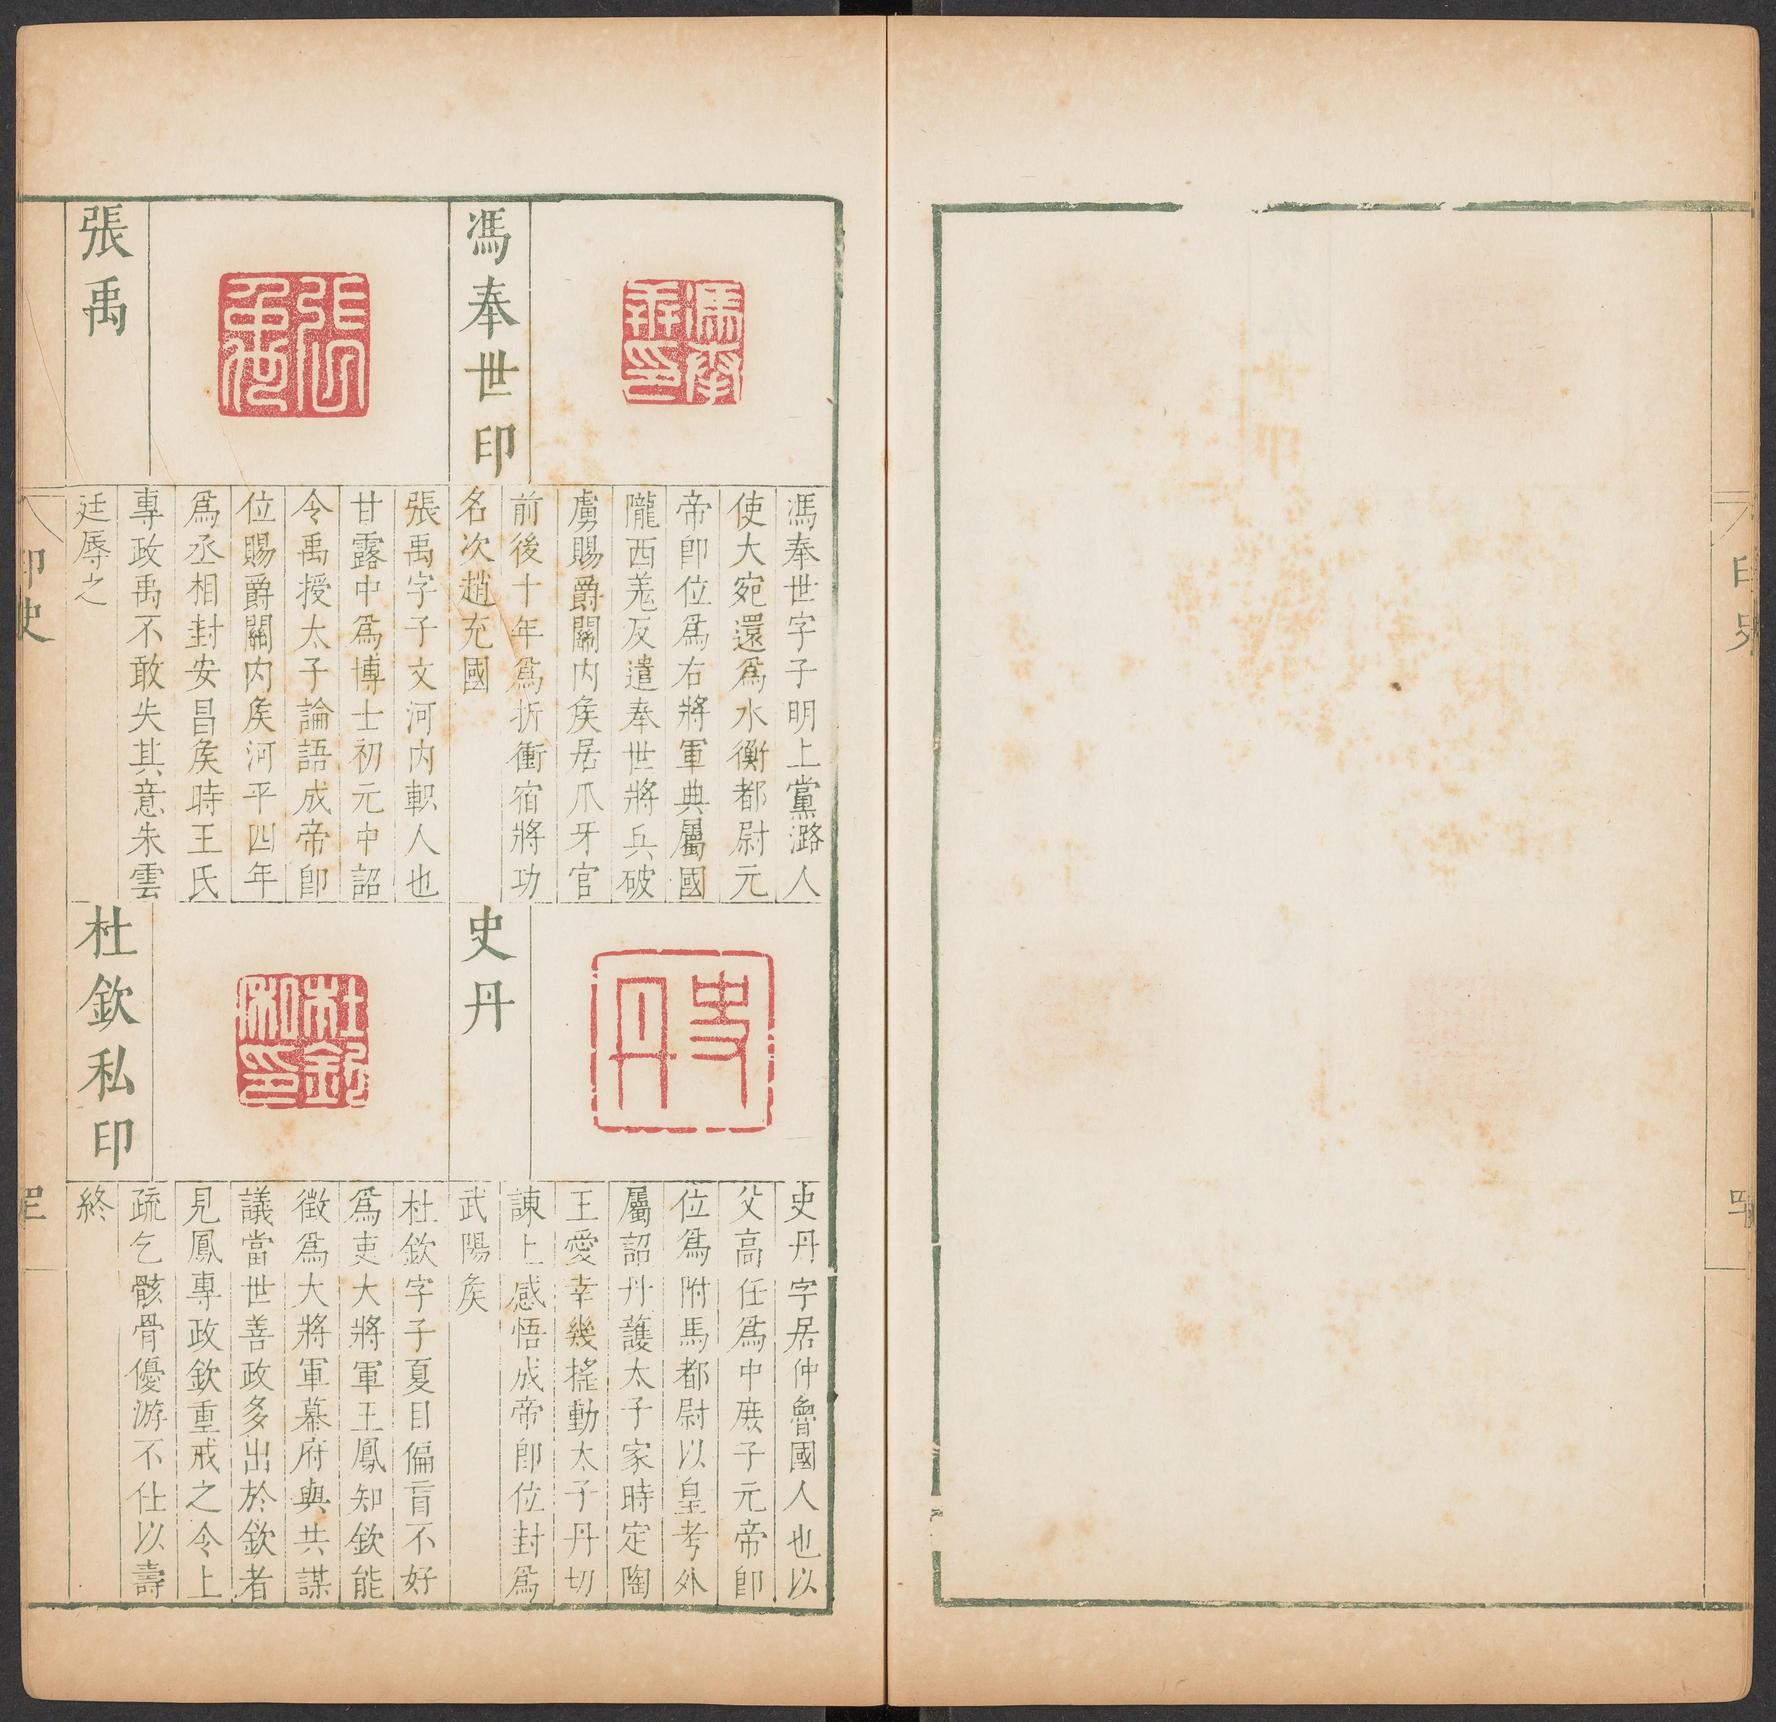 馮奉世印
馮奉世字子明上黨潞人
使大宛還爲水衡都尉元
帝卽位爲右將軍典屬國
隴西羌反遣奉世將兵破
虜賜爵關内矦居爪牙官
前後十年爲折衝宿將功
名次趙充國
張禹
張禹字子文河内軹人也
甘露中爲博士初元中詔
令禹授太子論語成帝卽
位賜爵關内矦河平四年
爲丞相封安昌矦時王氏
專政禹不敢失其意朱雲
廷辱之
史丹
史丹
史丹字居仲魯國人也以
父高任爲中庶子元帝卽
位爲駙馬都尉以皇考外
屬詔丹護太子家時定陶
王愛幸幾搖動太子丹切
諌上感悟成帝卽位封爲
武陽矦
杜欽私印
杜欽私印
杜欽字子夏目偏盲不好
爲吏大將軍王鳳知欽能
徵爲大將軍幕府與共謀
議當世善政多出於欽者
見鳳專政欽重戒之令上
疏乞骸骨優游不仕以壽
終
印史